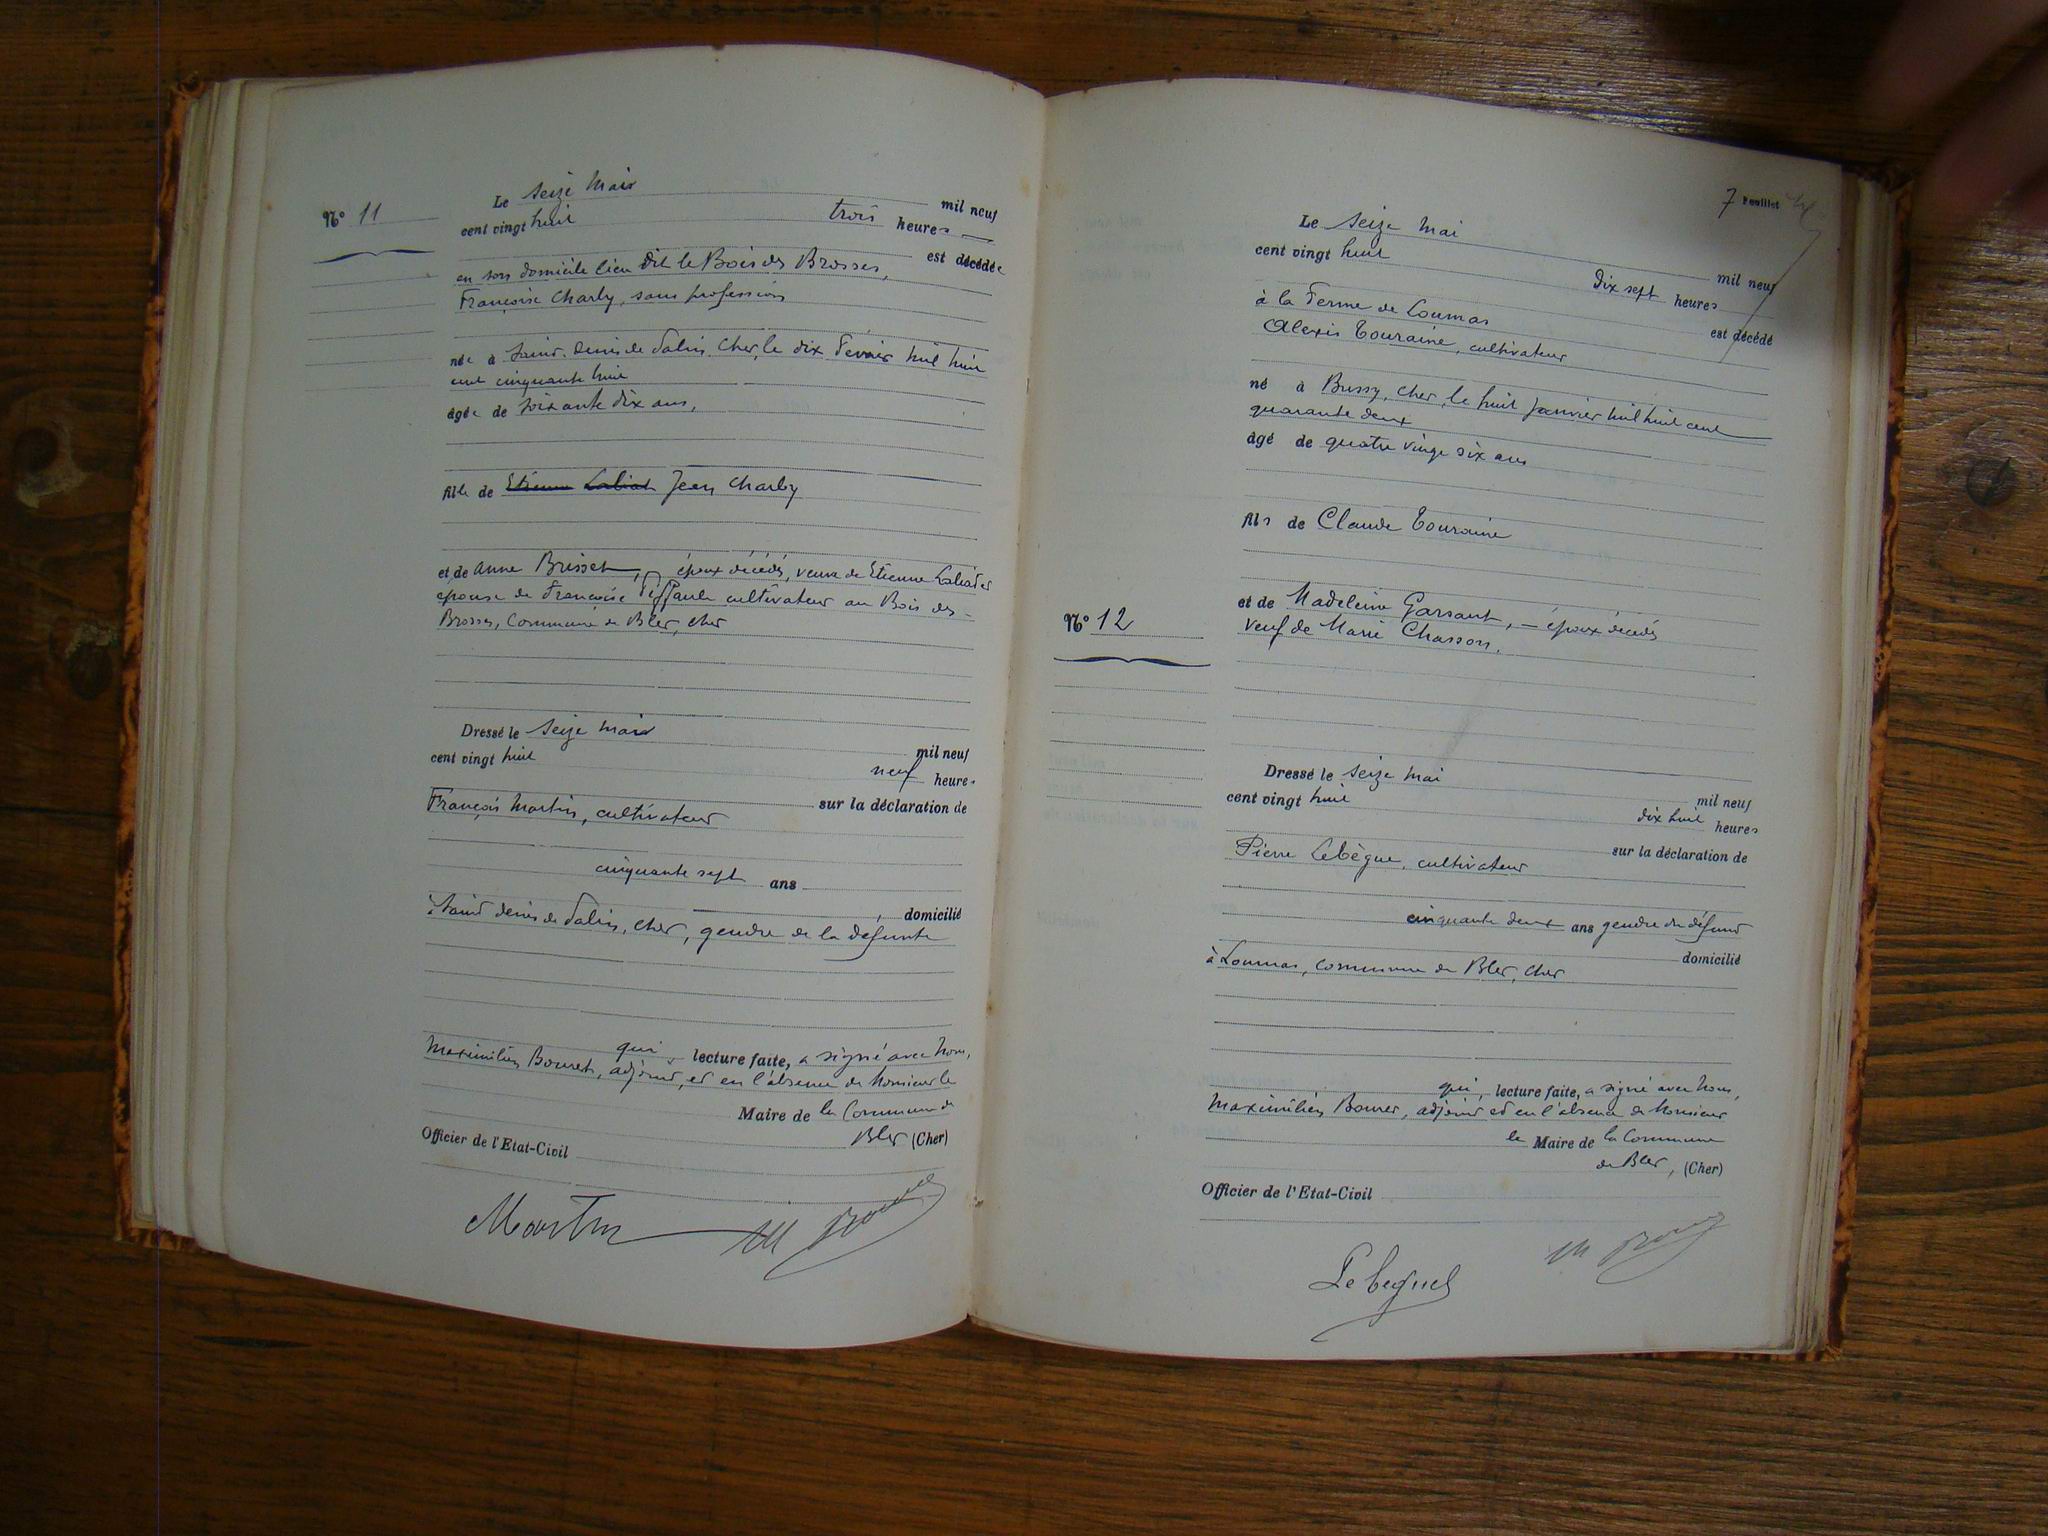 N° 11
Le seize mai mil neuf
cent vingt huit trois heures
est décédée
en son domicile lieu dit le Bois des Brosses,
Françoise Charby, sans profession
née à Saint-Denis de Palin, Cher, le dix Février mil huit
cent cinquante huit
âgée de soixante dix ans,
fille de Etienne Labiat Jean Charby
et de Anne Brisset, époux décédés, veuve de Etienne Labiat et
épouse de Françoise cultivateur au Bois des-
Brosses, Commune de Blet, Cher
Dressé le seize mai mil neuf
cent vingt huit neuf heures
sur la déclaration de
François Martin, cultivateur
cinquante sept ans
domicilié
à Saint denis de Palin, Cher, gendre de la défunte
qui lecture faite, a signé avec Nous,
Maximilien Bouret, adjoint, et en l'absence de Monsieur le
Maire de la Commune de
Blet (Cher)
Officier de l'Etat-Civil
Martin M Bouret
7 Feuillet
Le seize mai mil neuf
cent vingt huit
dix sept heures
est décédé
à la Ferme de Loumas
Alexis Touraine, cultivateur
né à Bussy, Cher, le huit Janvier mil huit cent
quarante deux
âgé de quatre vingt six ans
fils de Claude Touraine
N° 12
et de Madeleine Garsault, - époux décédés
veuf de Marie Chasson.
Dressé le seize mai mil neuf
cent vingt huit dix huit heures
sur la déclaration de
Pierre Lebègue, cultivateur
cinquante deux ans gendre du défunt
domicilié
à Loumas, commune de Blet, Cher
qui, lecture faite, a signé avec Nous,
Maximilien Bouret, adjoint et en l'absence de Monsieur
le Maire de la Commune
de Blet, (Cher)
Officier de l'Etat-Civil
M Bouret